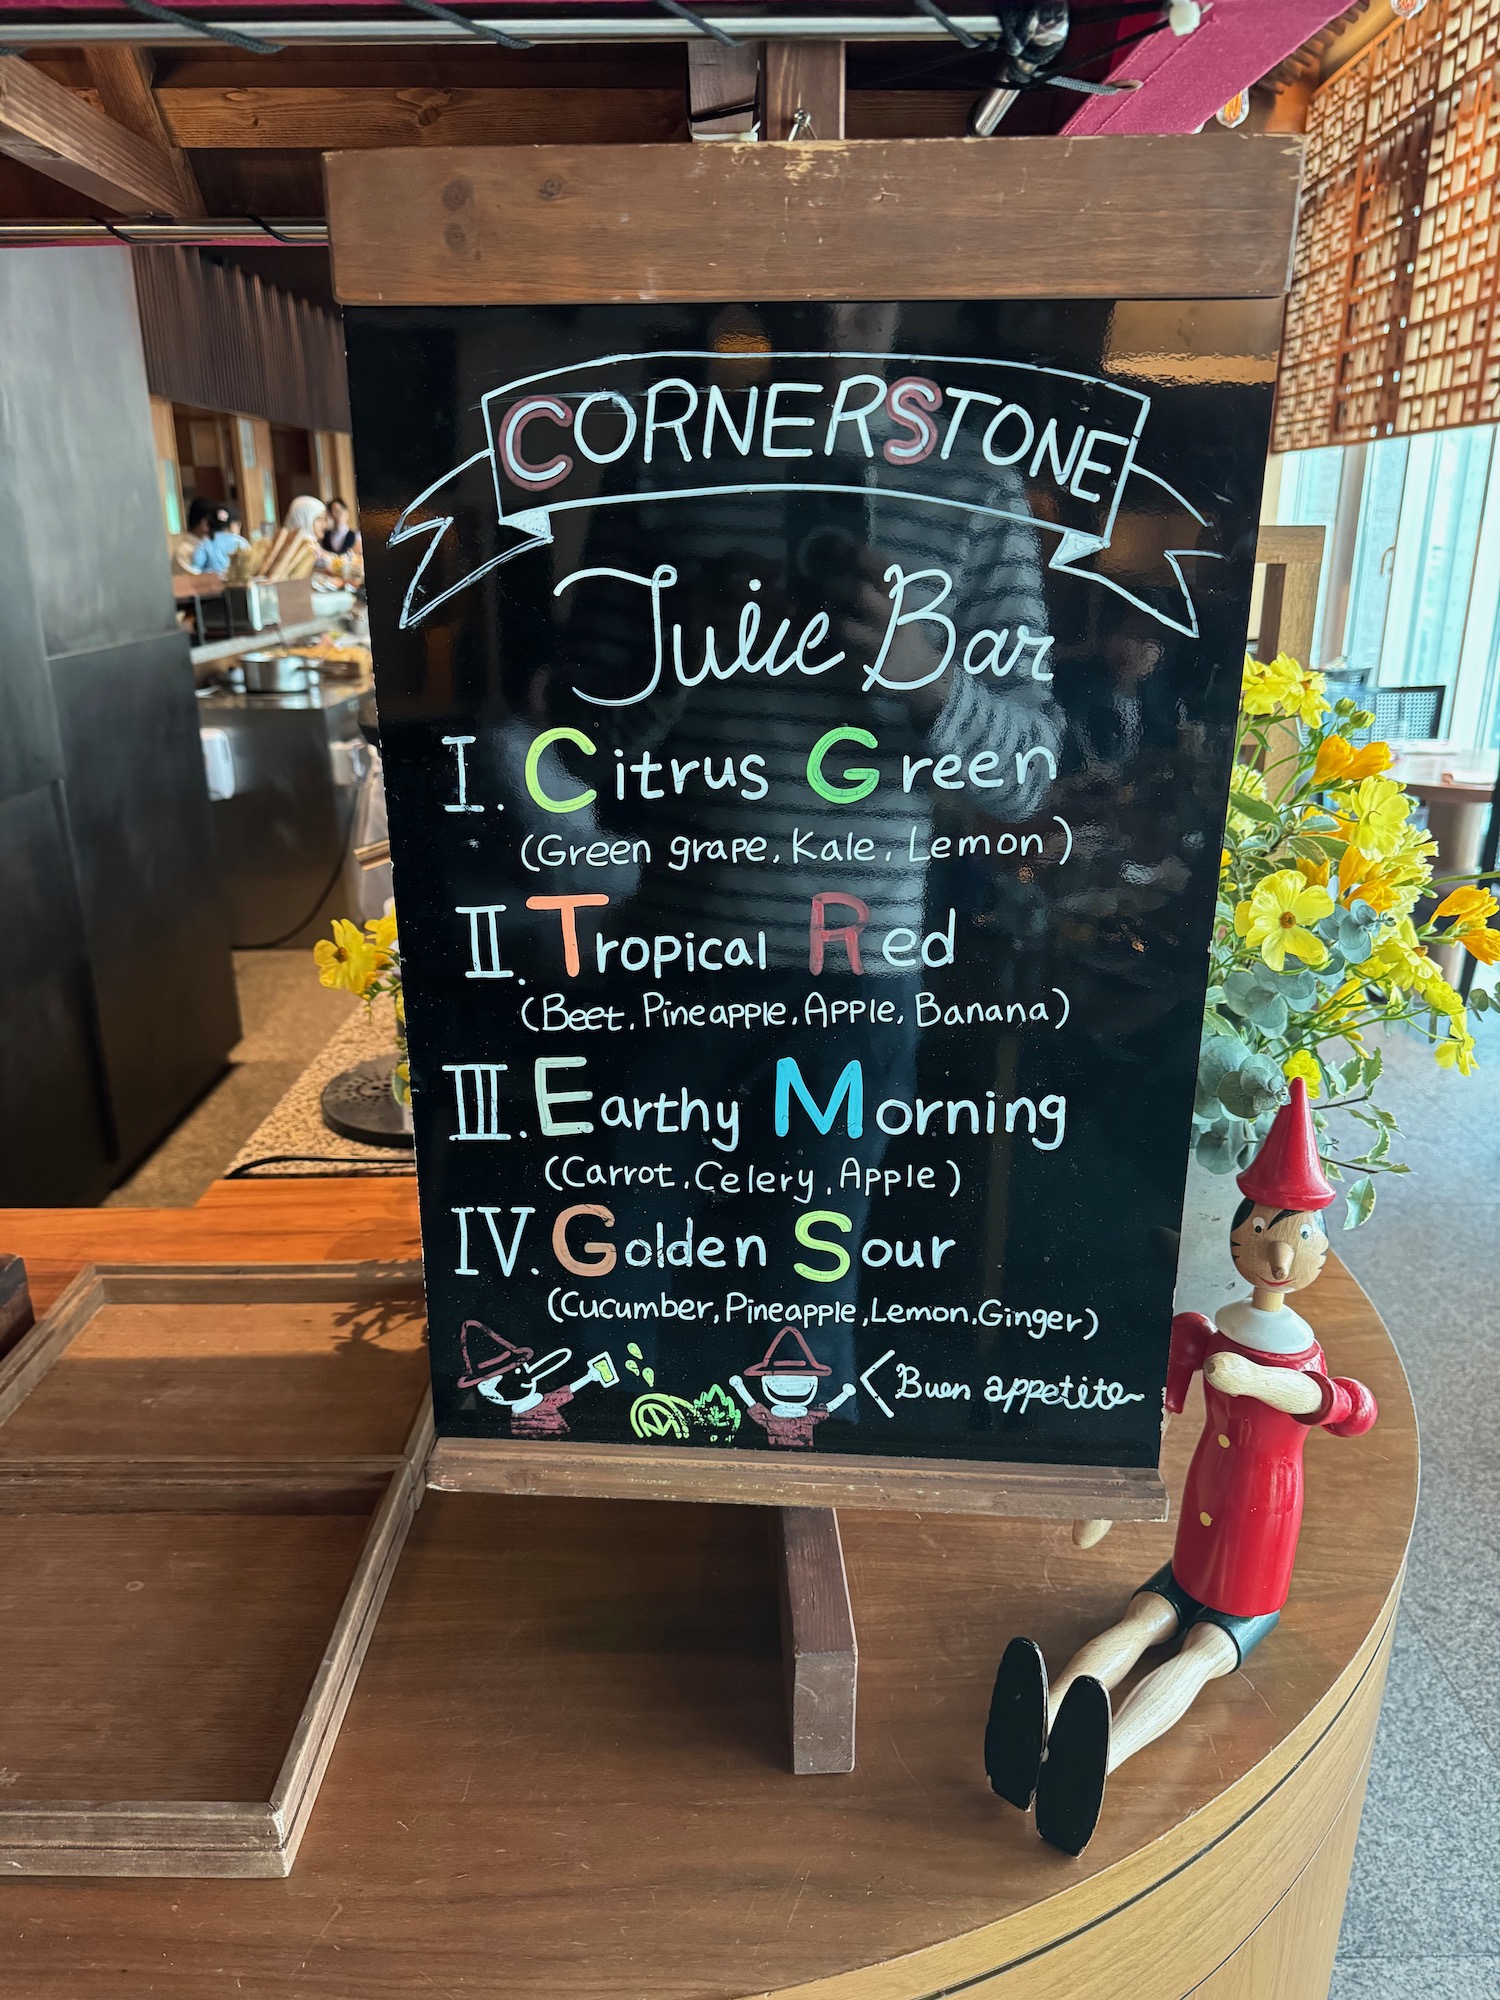 CORNERSTONE
Juice Bar
I. Citrus Green
(Green grape, Kale, Lemon)
II. Tropical Red
(Beet, Pineapple, Apple, Banana)
III. Earthy Morning
(Carrot, Celery, Apple)
IV. Golden Sour
(Cucumber, Pineapple, Lemon, Ginger)
Buen appetite